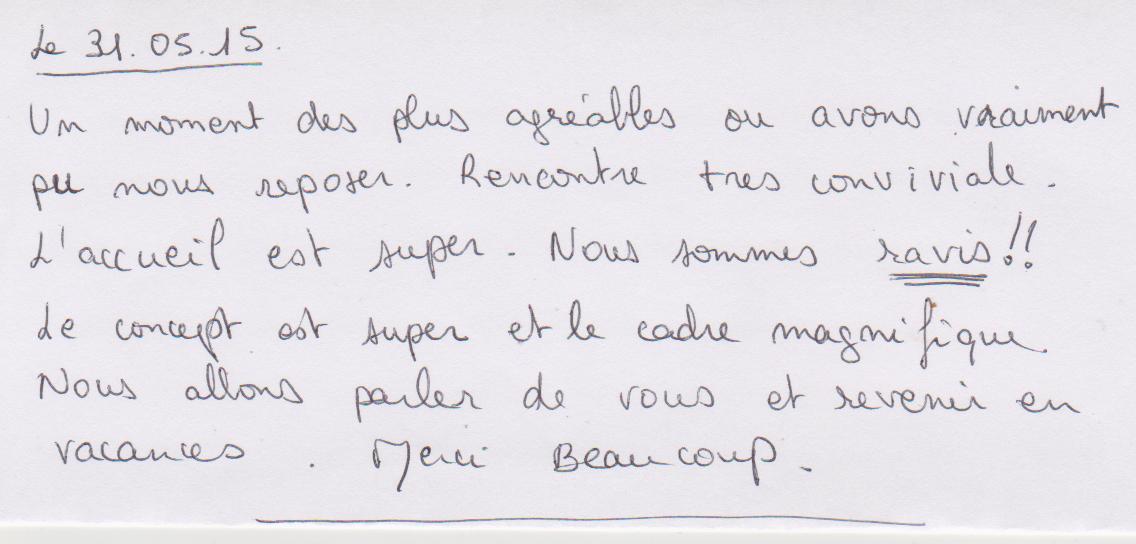 Le 31.05.15.
Un moment des plus agréables ou avons vraiment
pu nous reposer. Rencontre tres conviviale.
L'accueil est super. Nous sommes ravis!!
Le concept est super et le cadre magnifique.
Nous allons parler de vous et revenir en
vacances. Merci Beaucoup.